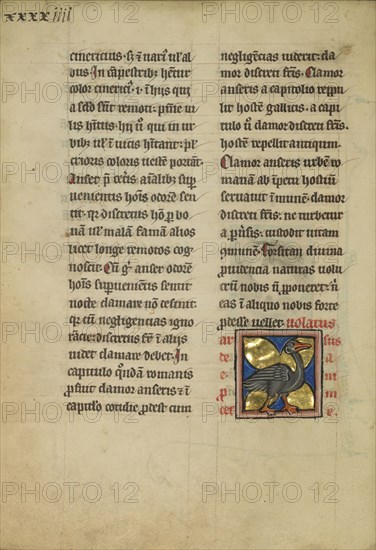 xxxxiiii
cinericius. s; & nar' ul' al
bus. In campestrib; hetur
color cineric'. i. i hijs qui
a sclo st' remoti. 
ul' hitus. hij u' qui in ur
bib; ul' i uicis hitant:
coloris ueste portat.
Anser p ceteris aialib; sup
uenientis hois odore sen
tit. qr discretus ho p bo
na ul' mala fama alios
licet longe remotos cog
noscit. Cu g anser odore
hois superuenientis sentit
nocte clamare no desinit.
qr cu negligencias igno
racie discretus fr i alijs
uidet clamare debet. In
capitulo qda romanis
pfuit clamor anseris & i
capitulo cotidie pdest cum
negligecias uiderit: cla
mor discreti fris. Clamor
anseris a capitolio reppu
lit hoste gallicu. a capi
tulo u' clamor discreti fris.
hoste repellit antiquum.
Clamor anseris urbe ro
mana ab ipetu hostiu
seruauit imune. clamor
discreti fris: ne turbetur
a puisis: custodit uitam
comune. Forsitan diuina
puidencia naturas uolu
cru nobis n pponeret: n
eas i aliquo nobis forte
pdesse uellet. uolatus